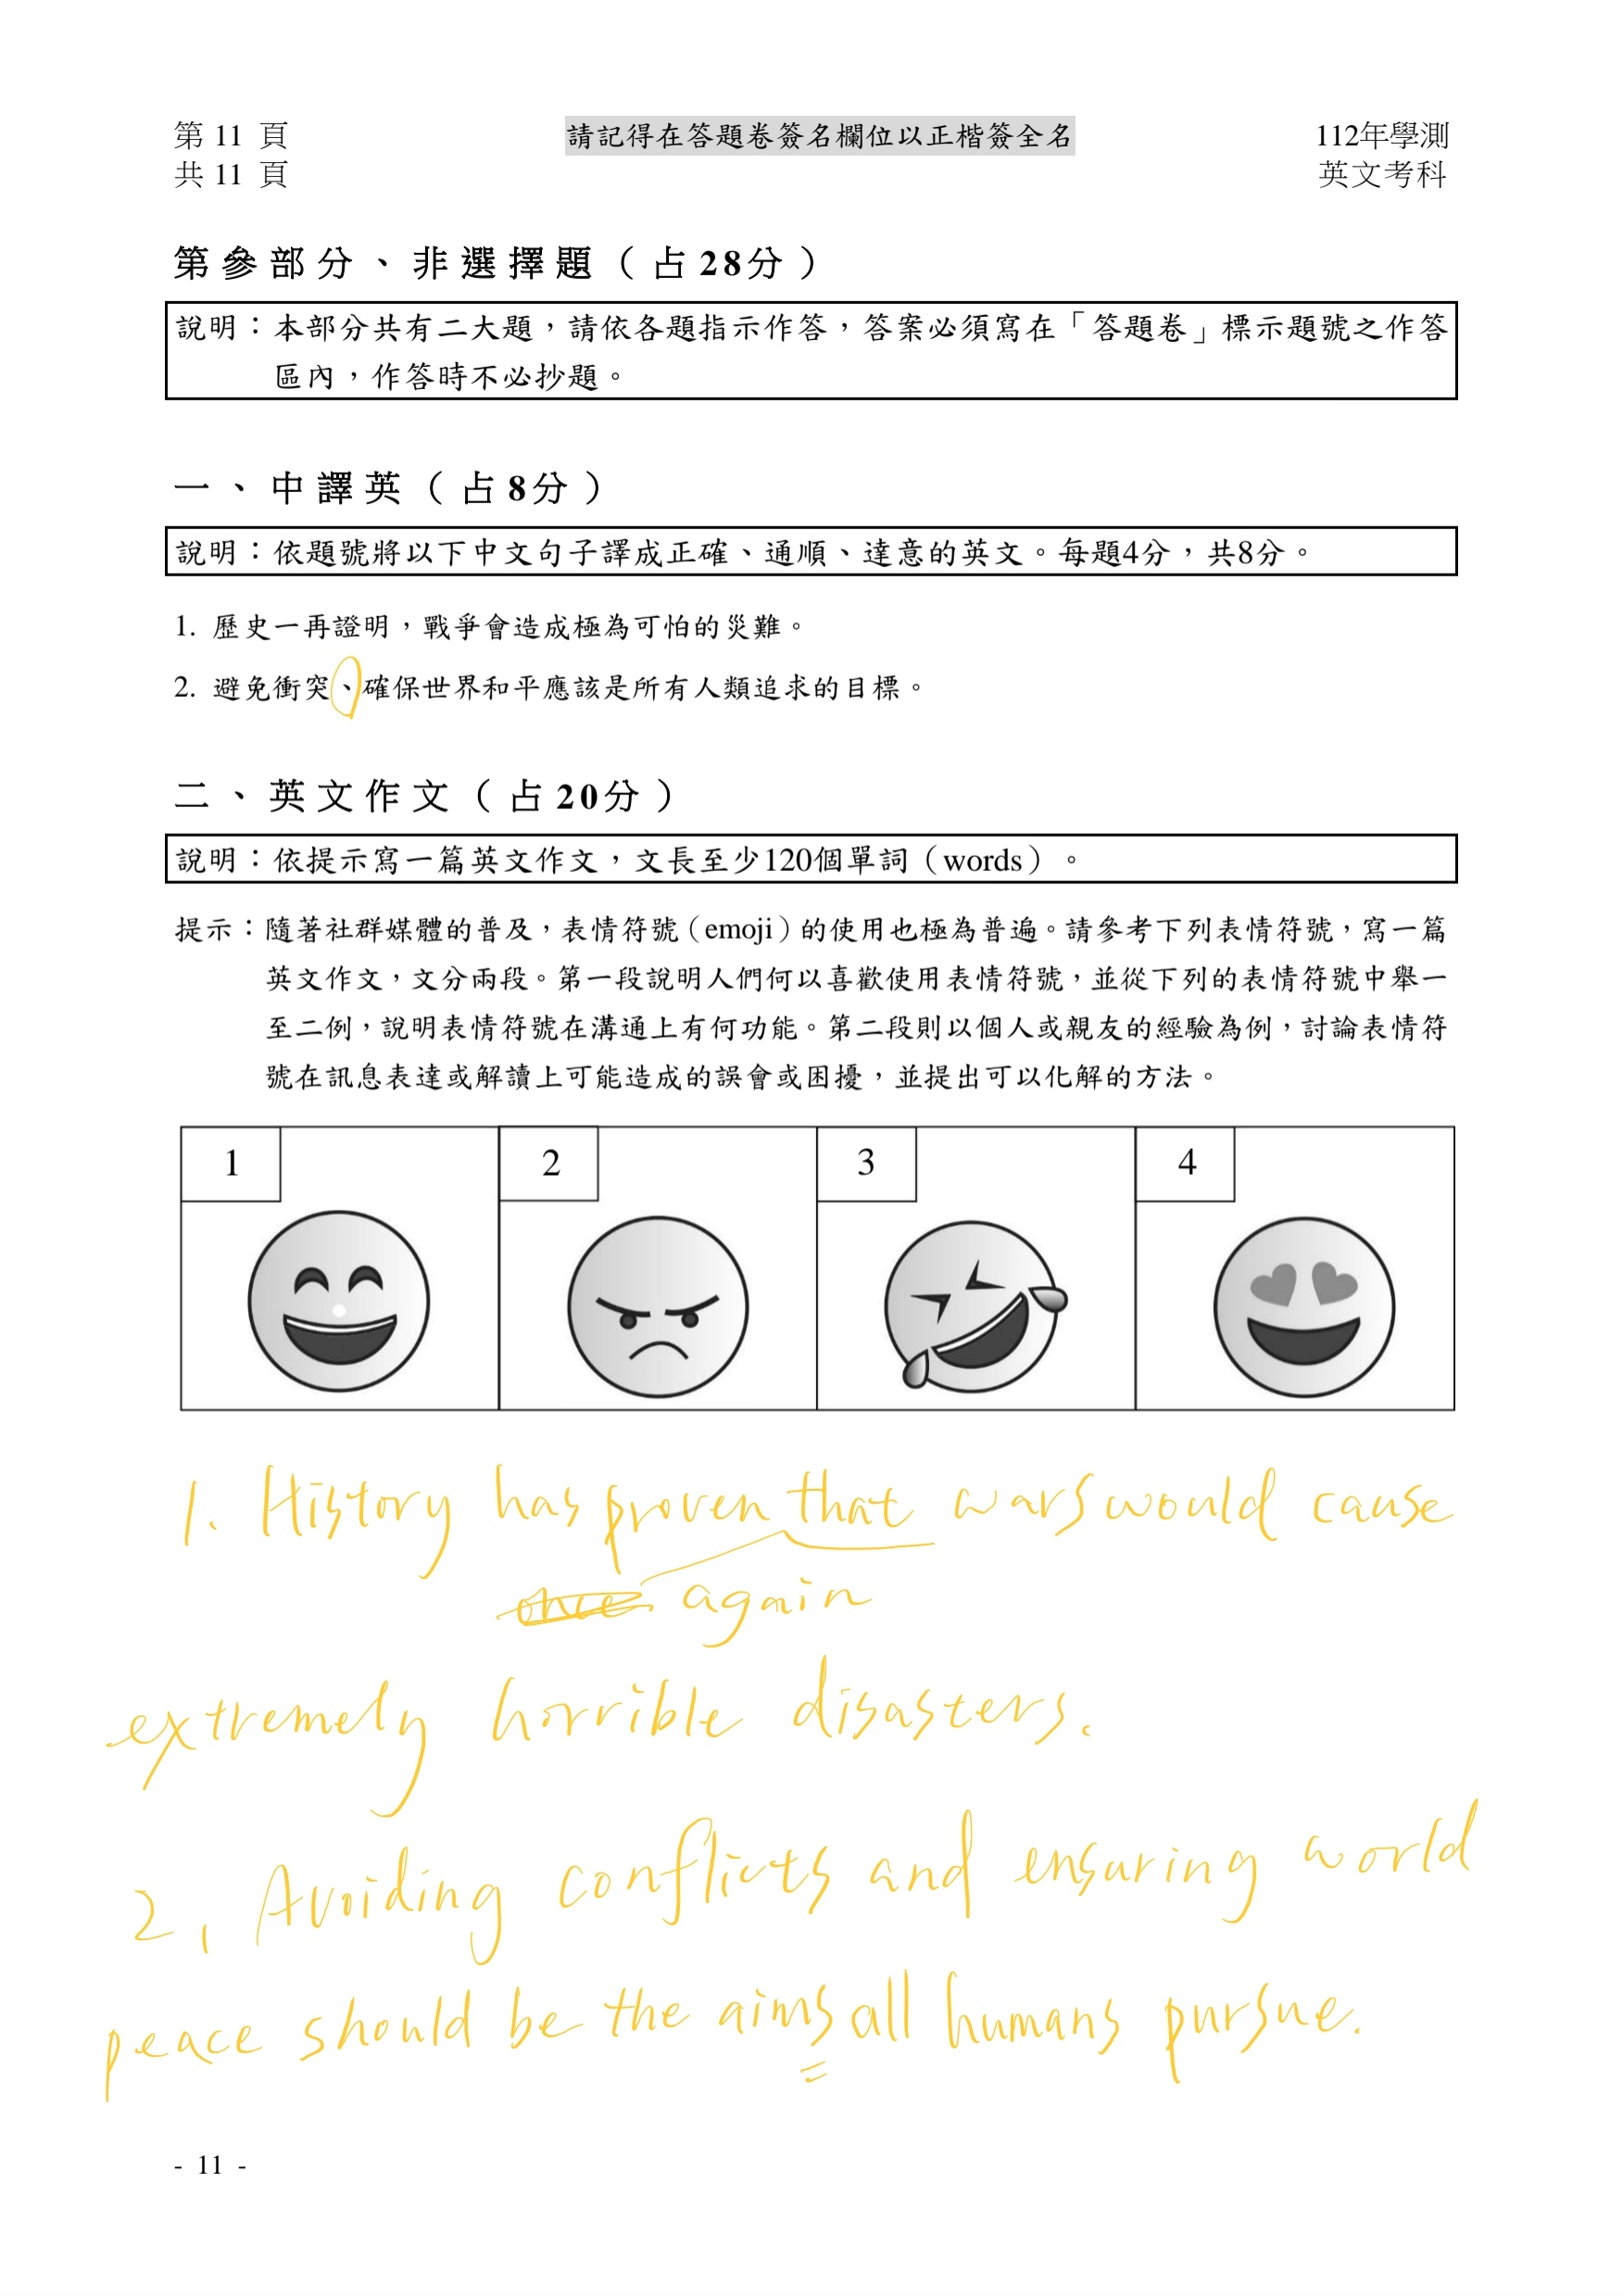 第 11 頁
共 11 頁
請記得在答題卷簽名欄位以正楷簽全名
112年學測
英文考科
第參部分、非選擇題（占28分）
說明：本部分共有二大題，請依各題指示作答，答案必須寫在「答題卷」標示題號之作答
區內，作答時不必抄題。
一、中譯英（占8分）
說明：依題號將以下中文句子譯成正確、通順、達意的英文。每題4分，共8分。
1. 歷史一再證明，戰爭會造成極為可怕的災難。
2. 避免衝突、確保世界和平應該是所有人類追求的目標。
二、英文作文（占20分）
說明：依提示寫一篇英文作文，文長至少120個單詞（words）。
提示：隨著社群媒體的普及，表情符號（emoji）的使用也極為普遍。請參考下列表情符號，寫一篇
英文作文，文分兩段。第一段說明人們何以喜歡使用表情符號，並從下列的表情符號中舉一
至二例，說明表情符號在溝通上有何功能。第二段則以個人或親友的經驗為例，討論表情符
號在訊息表達或解讀上可能造成的誤會或困擾，並提出可以化解的方法。
1
2
3
4
1. History has proven that wars would cause
once again
extremely horrible disasters.
2. Avoiding conflicts and ensuring world
peace should be the aims all humans pursue.
- 11 -